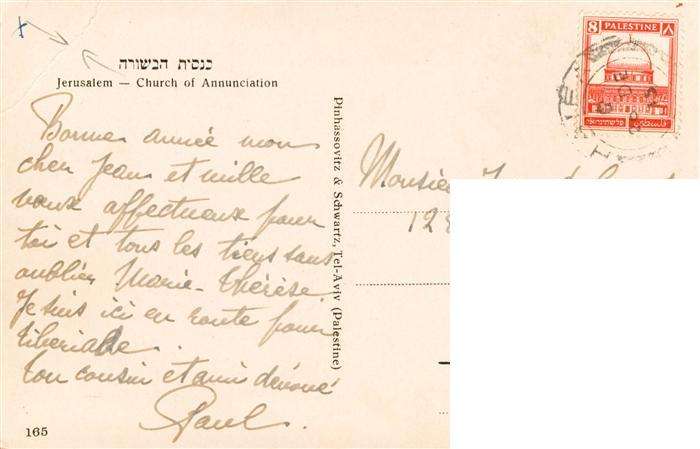 כנסית הבשורה
Jerusalem — Church of Annunciation
Bonne année mon
cher Jean et mille
vœux affectueux pour
toi et tous les tiens sans
oublier Marie-Thérèse.
Je suis ici en route pour
Tibériade.
Ton cousin et ami dévoué
Paul.
165
Pinhassovitz & Schwartz, Tel-Aviv (Palestine)
8 PALESTINE ٨
Monsieur